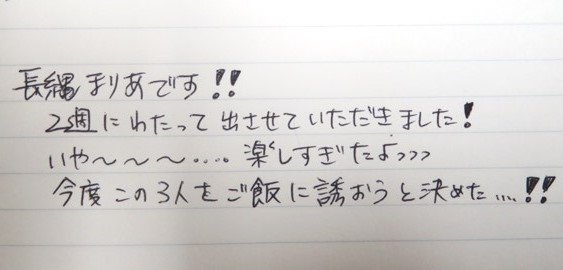 長縄まりあです!!
2週にわたって出させていただきました!
いや〜〜〜....楽しすぎたよっっっ
今度この3人をご飯に誘おうと決めた....!!